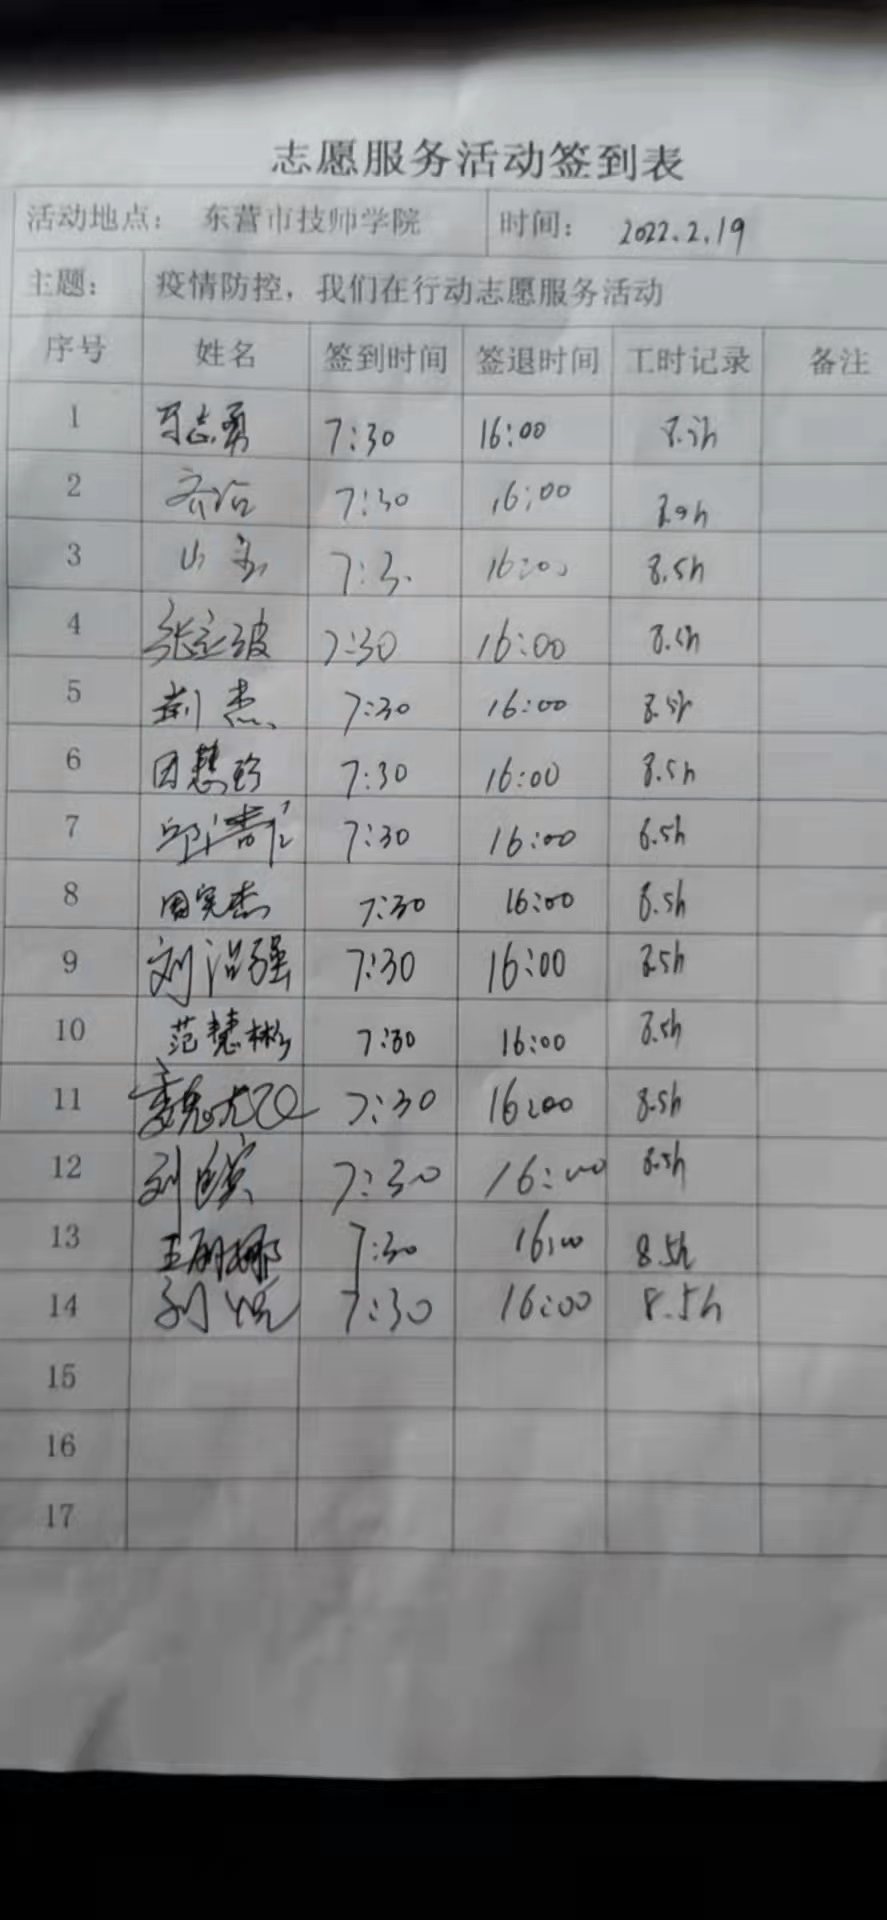 志愿服务活动签到表
活动地点： 东营市技师学院 时间： 2022.2.19
主题： 疫情防控，我们在行动志愿服务活动
序号 姓名 签到时间 签退时间 工时记录 备注
1 7:30 16:00
2 7:30 16:00
3 山 8.5h
4 张立波 7:30 16:00
5 荆杰 7:30 16:00 8.5h
6 7:30 16:00 8.5h
7 7:30 16:00
8 周宪杰 7:30 16:00 8.5h
9 刘治强 7:30 16:00 8.5h
10 范慧彬 7:30 16:00 8.5h
11 7:30 16:00 8.5h
12 刘 7:30 16:00 8.5h
13 王 7:30 16:00 8.5h
14 刘悦 7:30 16:00 8.5h
15
16
17